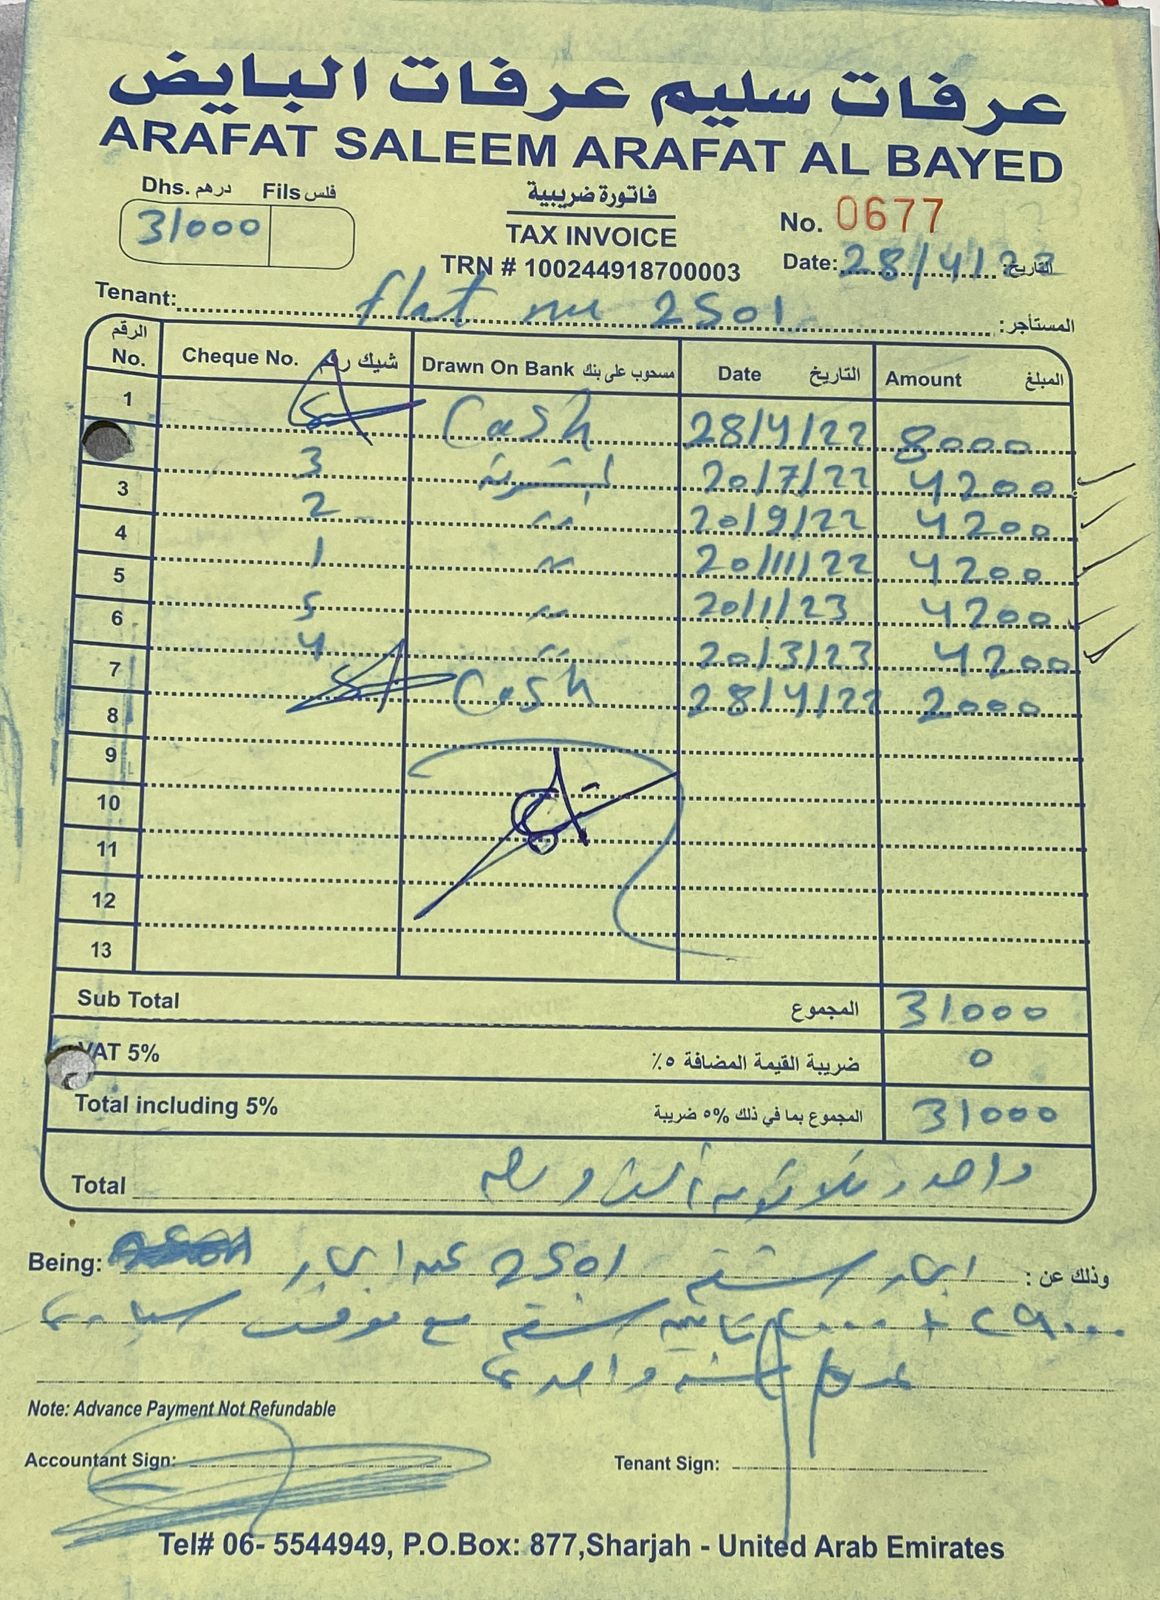 عرفات سليم عرفات البايض
ARAFAT SALEEM ARAFAT AL BAYED
Dhs. درهم Fils فلس
31000
فاتورة ضريبية
TAX INVOICE
TRN # 100244918700003
No. 0677
Date: 28/4/22 التاريخ:
Tenant: flat nu 2501 المستأجر:
الرقم No. Cheque No. شيك رقم Drawn On Bank مسحوب على بنك Date التاريخ Amount المبلغ
1 Cash 28/4/22 8000
3 20/7/22 4200
3 2 〃 20/9/22 4200
4 1 〃 20/11/22 4200
5 5 〃 20/1/23 4200
6 4 〃 20/3/23 4200
7 Cash 28/4/22 2000
8
9
10
11
12
13
Sub Total المجموع 31000
VAT 5% ضريبة القيمة المضافة ٥٪ 0
Total including 5% المجموع بما في ذلك 5% ضريبة 31000
Total واحد وثلاثون
Being: ايجار شقة 2501 عن ايجار وذلك عن :
٢٩٠٠٠ + ٢٠٠٠ تأمين شقة مع موقف سيارة
سنة واحدة
Note: Advance Payment Not Refundable
Accountant Sign:
Tenant Sign:
Tel# 06- 5544949, P.O.Box: 877,Sharjah - United Arab Emirates